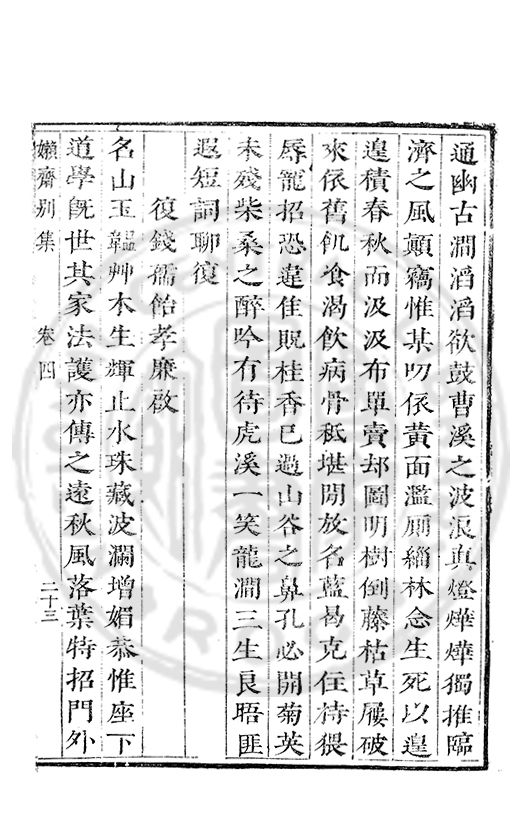 通幽古澗滔滔欲鼓曹溪之波浪真燈燁燁獨推臨
濟之風顛竊惟某叨依黃面濫廁緇林念生死以遑
遑積春秋而汲汲布單賣却圖明樹倒藤枯草屨破
來依舊飢飡渴飲病骨秪堪閒放名藍曷克住持猥
辱龍招恐違佳貺桂香巳過山谷之鼻孔必開菊英
未殘柴桑之醉吟有待虎溪一笑龍澗三生良晤匪
遐短詞聊復
復錢孺飴孝廉啟
名山玉韞艸木生輝止水珠藏波瀾增媚恭惟座下
道學旣世其家法護亦傳之遠秋風落葉特招門外
嬾齋別集
卷四
二十三